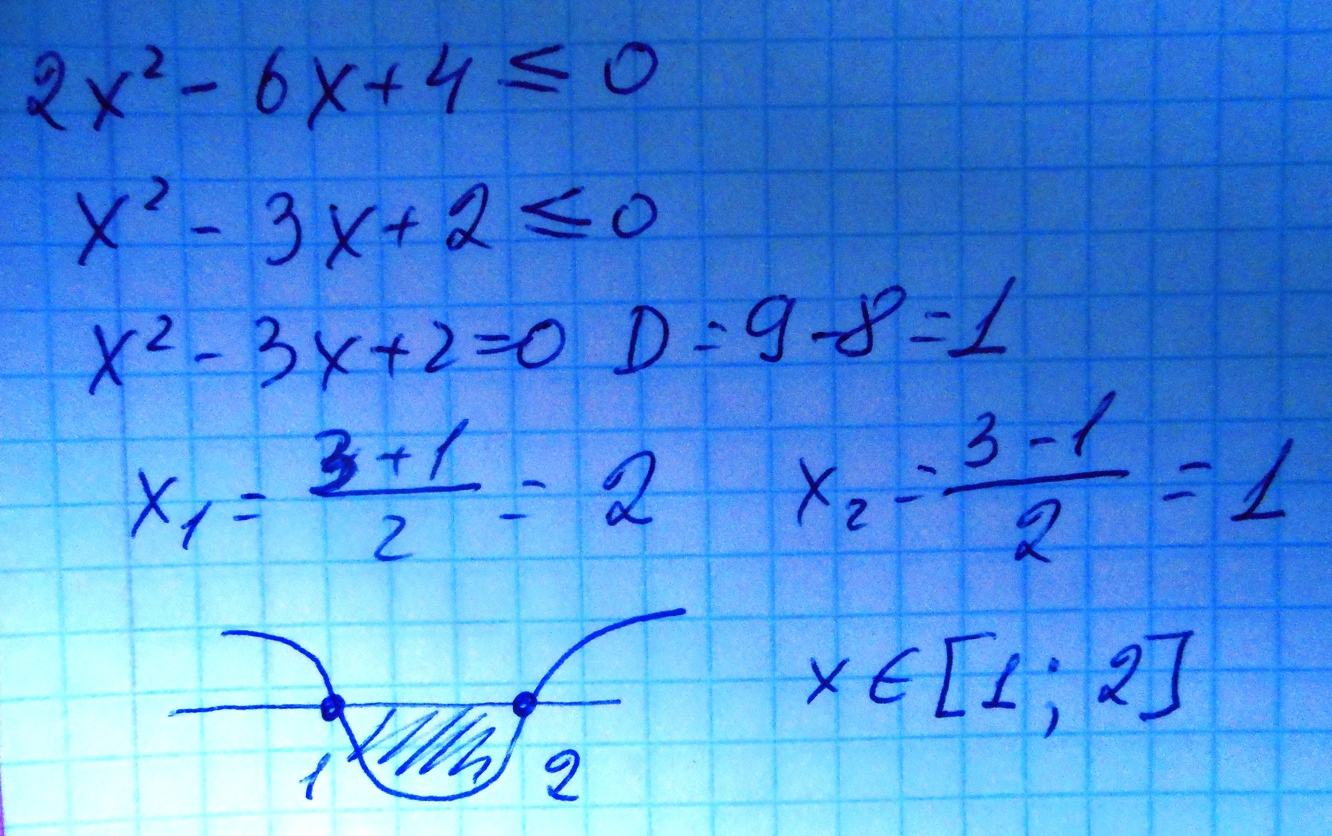 2x² - 6x + 4 ≤ 0
x² - 3x + 2 ≤ 0
x² - 3x + 2 = 0 D = 9 - 8 = 1
x₁ = (3 + 1)/2 = 2 x₂ = (3 - 1)/2 = 1
1 2 x ∈ [1; 2]